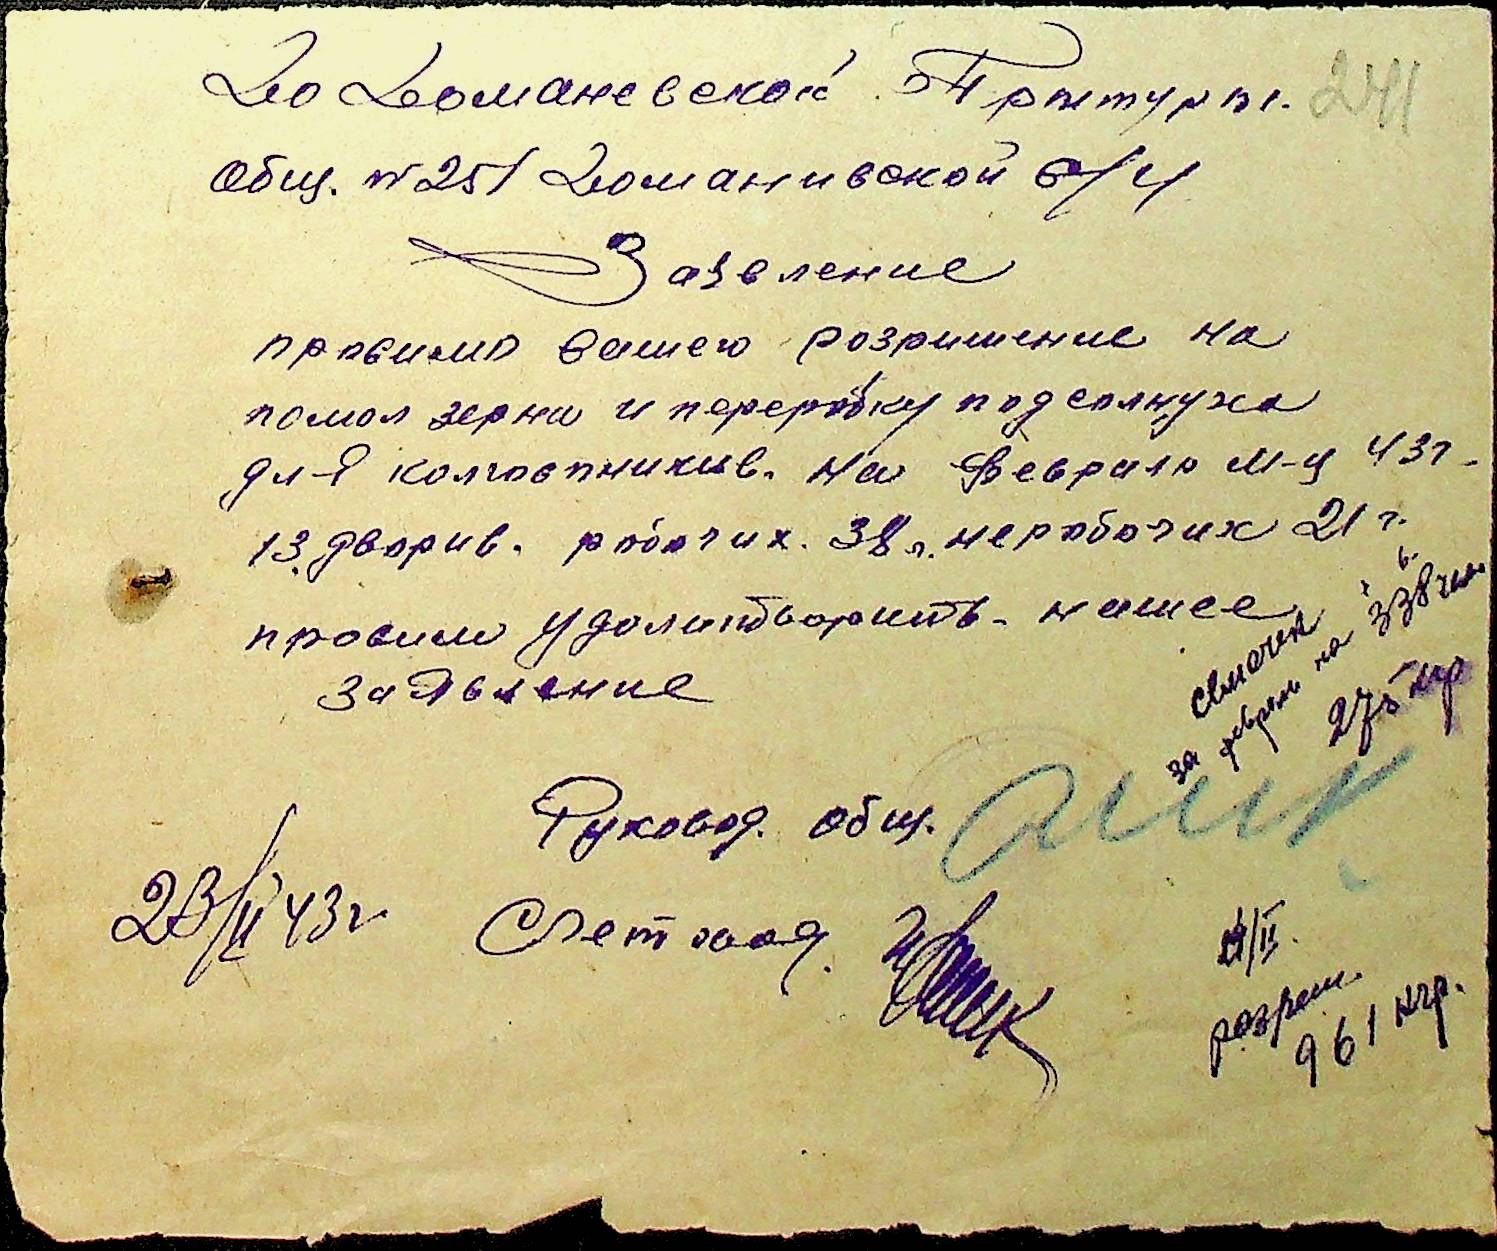 До Доманевской Притуры. 241
Общ. № 251 Доманивской с/у
Заявление
просимо вашего розришение на
помол зерна и переробку подсолнуха
для колгоспникив. на Февраль м-ц 43г.
13 дворив. робочих. 38 г. неробочих 21 г.
просим удолитворить. нашее
заявление
за февраль на 338 чел.
275 кгр
Руковод. общ.
23/II 43г Счетовод.
21/II.
розреш.
961 кгр.